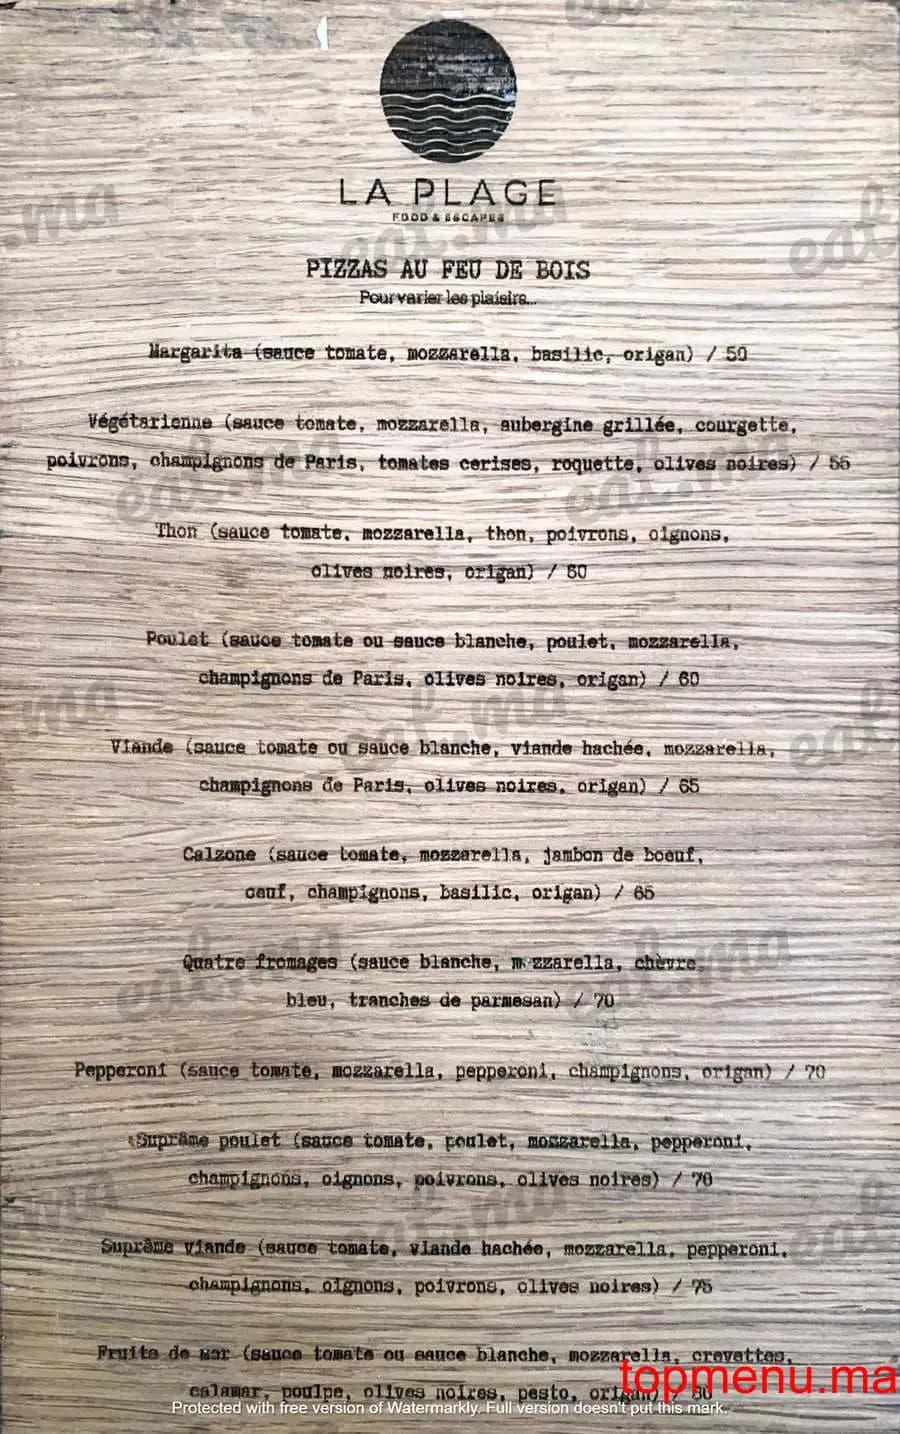 LA PLAGE
FOOD & ESCAPES
PIZZAS AU FEU DE BOIS
Pour varier les plaisirs...
Margarita (sauce tomate, mozzarella, basilic, origan) / 50
Végétarienne (sauce tomate, mozzarella, aubergine grillée, courgette,
poivrons, champignons de Paris, tomates cerises, roquette, olives noires) / 55
Thon (sauce tomate, mozzarella, thon, poivrons, oignons,
olives noires, origan) / 60
Poulet (sauce tomate ou sauce blanche, poulet, mozzarella,
champignons de Paris, olives noires, origan) / 60
Viande (sauce tomate ou sauce blanche, viande hachée, mozzarella,
champignons de Paris, olives noires, origan) / 65
Calzone (sauce tomate, mozzarella, jambon de boeuf,
oeuf, champignons, basilic, origan) / 65
Quatre fromages (sauce blanche, mozzarella, chèvre,
bleu, tranches de parmesan) / 70
Pepperoni (sauce tomate, mozzarella, pepperoni, champignons, origan) / 70
Suprême poulet (sauce tomate, poulet, mozzarella, pepperoni,
champignons, oignons, poivrons, olives noires) / 70
Suprême viande (sauce tomate, viande hachée, mozzarella, pepperoni,
champignons, oignons, poivrons, olives noires) / 75
Fruits de mer (sauce tomate ou sauce blanche, mozzarella, crevettes,
calamar, poulpe, olives noires, pesto, origan) / 80
topmenu.ma
Protected with free version of Watermarkly. Full version doesn't put this mark.
eat.ma